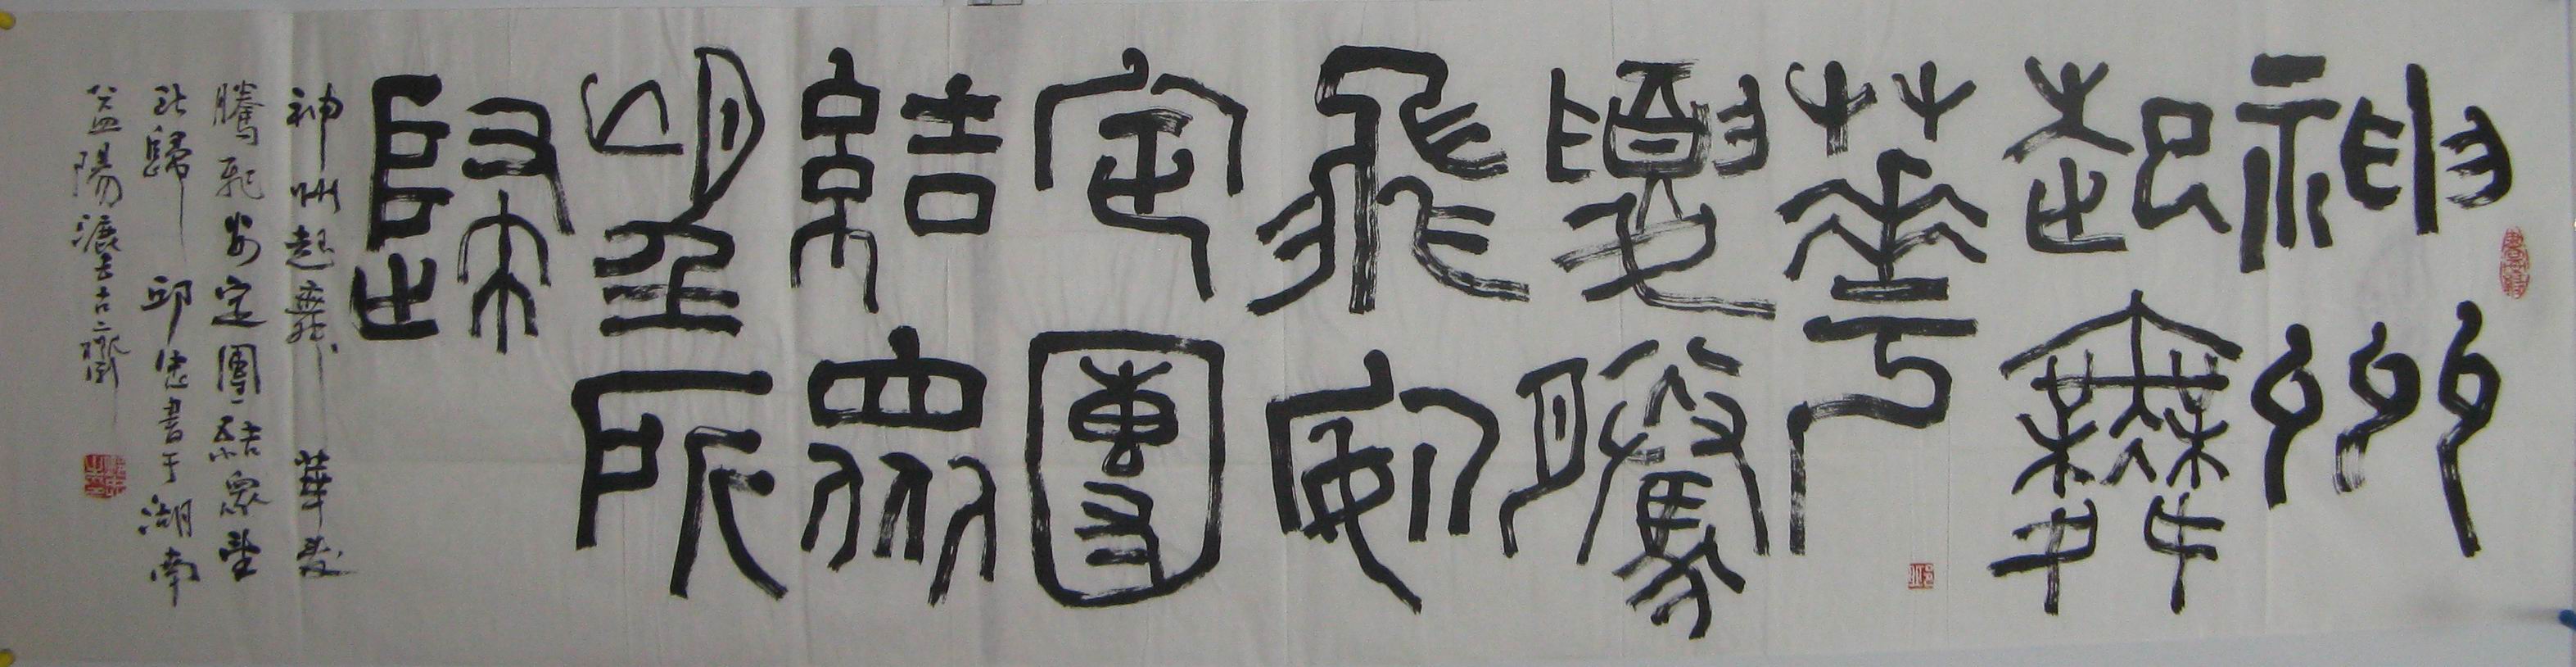 神州
起舞
華
夏騰
飛安
定團
結眾
望所
歸
神州起舞 華夏
騰飛安定團結眾望
所歸 邱忠書于湖南
益陽